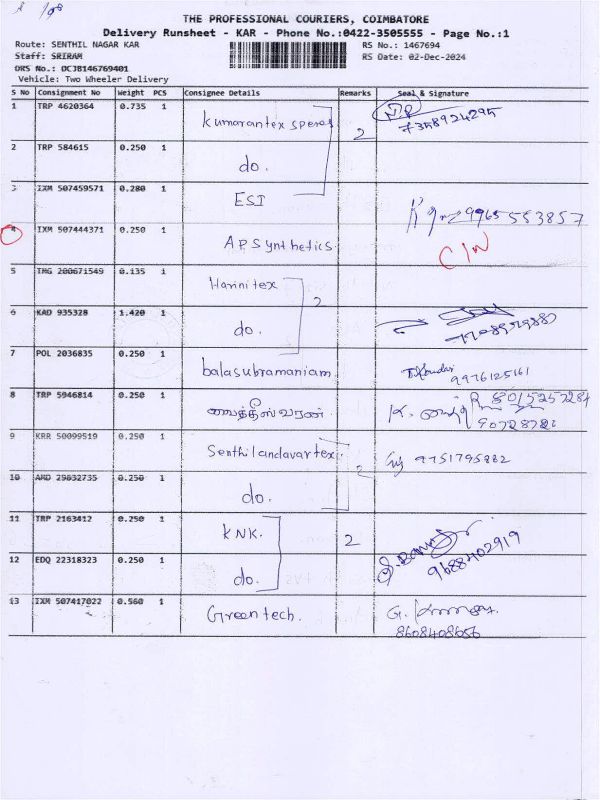 THE PROFESSIONAL COURIERS, COIMBATORE
Delivery Runsheet - KAR - Phone No.:0422-3505555 - Page No.:1
Route: SENTHIL NAGAR KAR RS No.: 1467694
Staff: SRIRAM RS Date: 02-Dec-2024
DRS No.: OCJB146769401
Vehicle: Two Wheeler Delivery
S No Consignment No Weight PCS Consignee Details Remarks Seal & Signature
1 TRP 4620364 0.735 1 Kumarantex speres 2 7358924295
2 TRP 584615 0.250 1 do.
3 IXM 507459571 0.280 1 ESI 9965553857
4 IXM 507444371 0.250 1 AP Synthetics C/N
5 TMG 200671549 0.135 1 Harini tex 2
6 KAD 935328 1.420 1 do.
7 POL 2036835 0.250 1 balasubramaniam. 9976125161
8 TRP 5946814 0.250 1 வைத்தீஸ்வரன். 8015257284
9 KRR 50099519 0.250 1 Senthilandavar tex. 2 9751795882
10 ARD 29832735 0.250 1 do.
11 TRP 2163412 0.250 1 KNK. 2
12 EDQ 22318323 0.250 1 do. 9688402919
13 IXM 507417022 0.560 1 Green tech.
8608408656